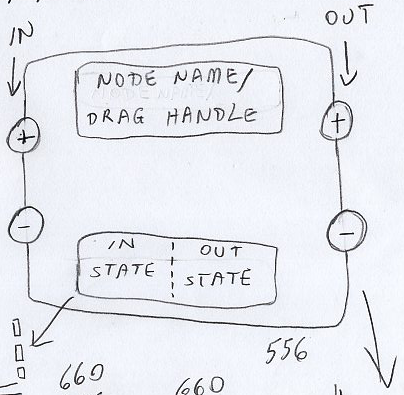 IN
OUT
NODE NAME/
DRAG HANDLE
+
+
-
-
IN OUT
STATE STATE
556
660
660